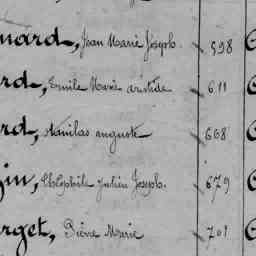 nard, Jean Marie Joseph. 598
rd, Emile Marie aristide 611
rd, Stanilas auguste 668
in, Théophile Julien Joseph. 679
rget, Pierre Marie 701